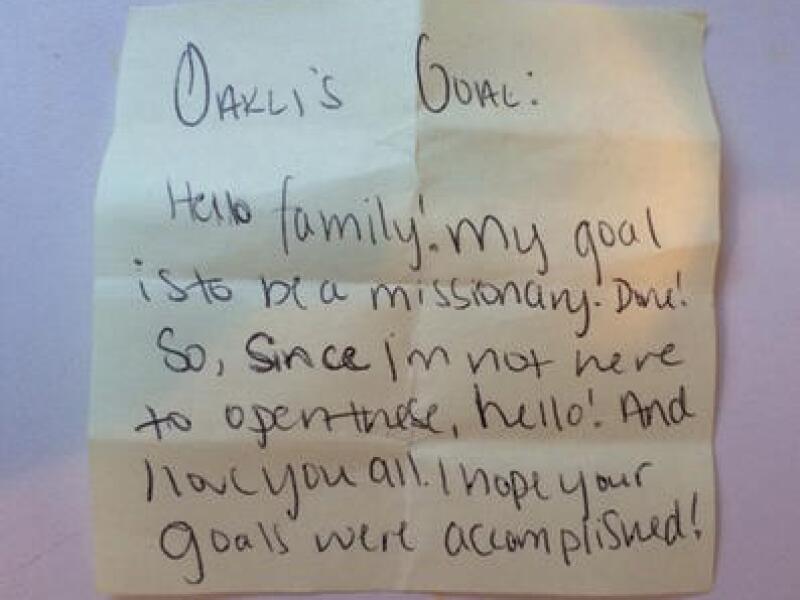 OAKLI'S GOAL:
Hello family! My goal
is to be a missionary. Done!
So, since i'm not here
to open these, hello! And
I love you all. I hope your
goals were accomplished!